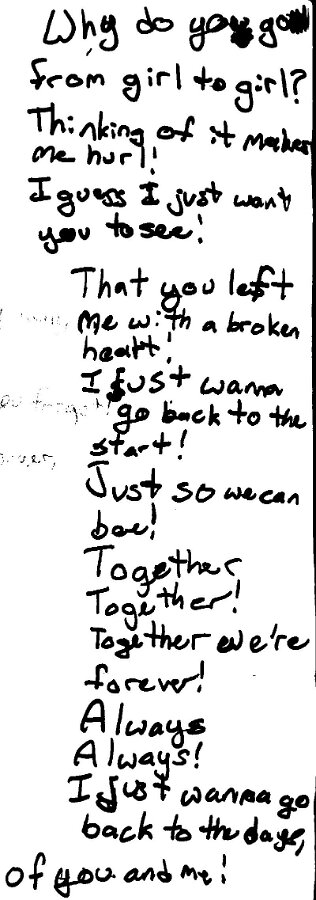 Why do you go
from girl to girl?
Thinking of it makes
me hurl!
I guess I just want
you to see!
That you left
me with a broken
heart!
I just wanna
go back to the
start!
Just so we can
bee!
Together
Together!
Together we're
forever!
Always
Always!
I just wanna go
back to the days,
of you and me!